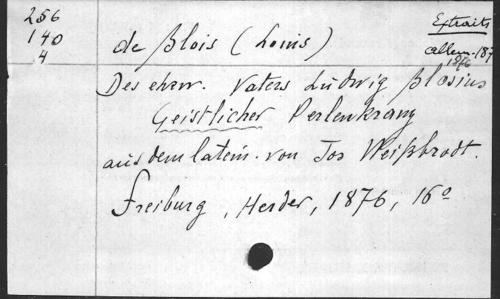 256
140
4
Extraits
allem. 187
1876
de Blois (Louis)
Des ehrw. Vaters Ludwig Blosius
Geistlicher Perlenkranz
aus dem latein. von Jos Weißbrodt.
Freiburg, Herder, 1876, 16º